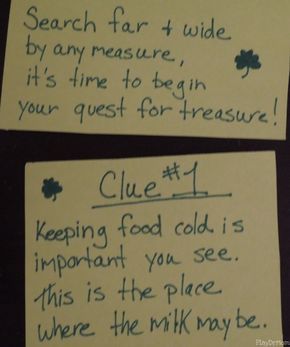 Search far & wide
by any measure,
it's time to begin
your quest for treasure!
Clue #1
Keeping food cold is
important you see.
This is the place
where the milk may be.
PlayDrMom